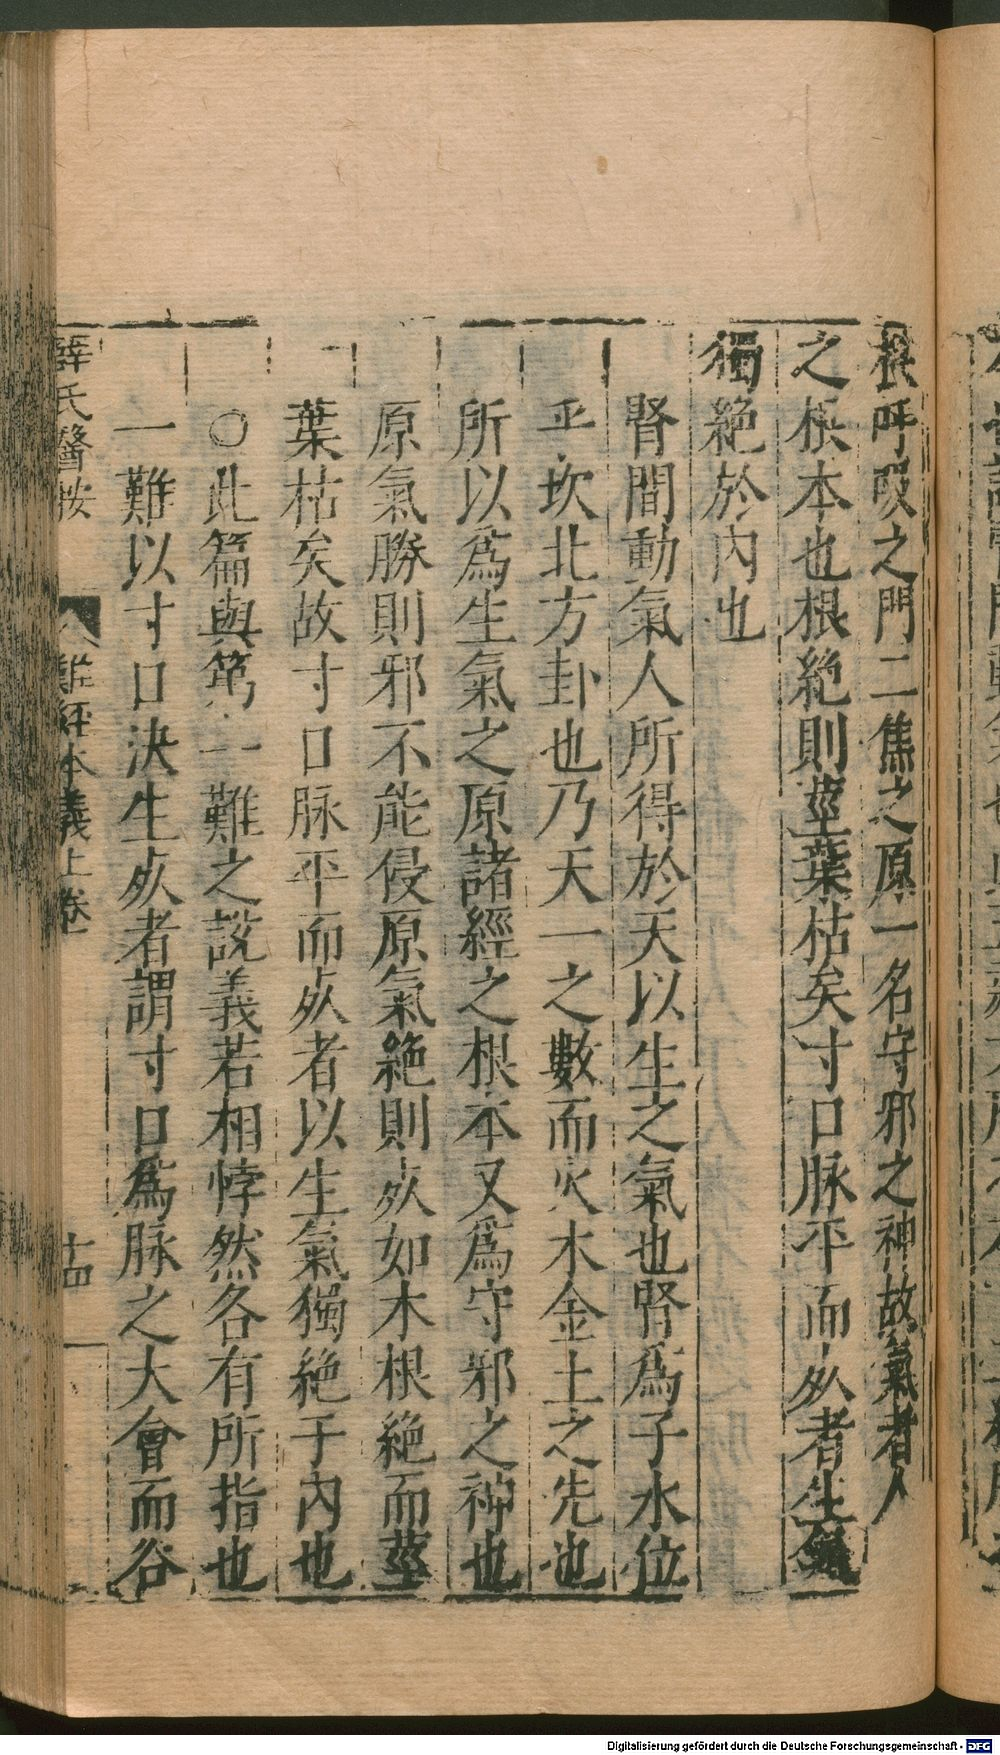 根呼吸之門三焦之原一名守邪之神故氣者人
之根本也根絶則莖葉枯矣寸口脉平而死者生氣
獨絶於内也
腎間動氣人所得於天以生之氣也腎爲子水位
乎坎北方卦也乃天一之數而火木金土之先也
所以爲生氣之原諸經之根本又爲守邪之神也
原氣勝則邪不能侵原氣絶則死如木根絶而莖
葉枯矣故寸口脉平而死者以生氣獨絶于内也
○此篇與第一難之説義若相悖然各有所指也
一難以寸口決生死者謂寸口爲脉之大會而谷
薛氏醫按 難經本義上卷 十四
Digitalisierung gefördert durch die Deutsche Forschungsgemeinschaft - DFG